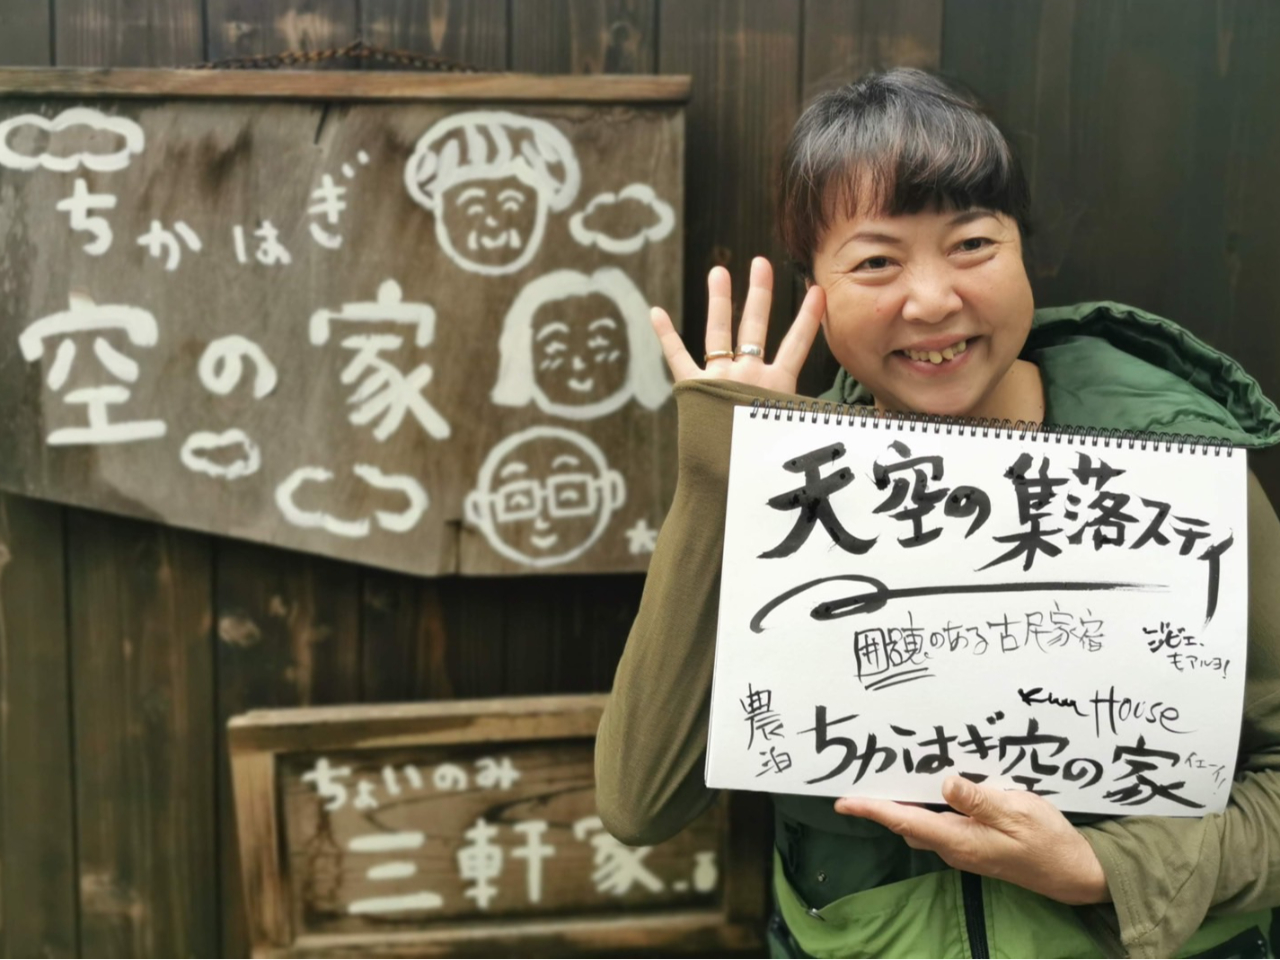 ちかはぎ
空の家
ちょいのみ
三軒家
天空の集落ステイ
囲炉裏のある古民家宿
ジビエ、
もアルヨ!
農泊
Kuu House
ちかはぎ空の家
イエーイ!